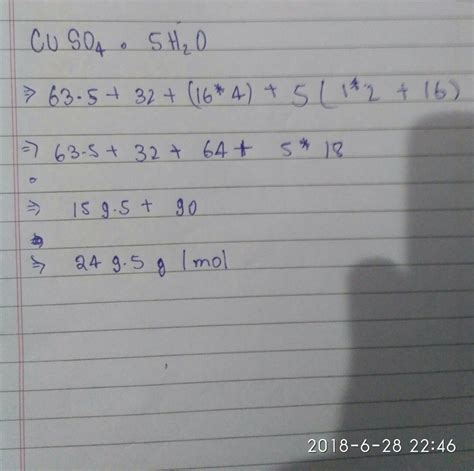 CU SO4 . 5H2O
⇒ 63.5 + 32 + (16*4) + 5 (1*2 + 16)
⇒ 63.5 + 32 + 64 + 5*18
⇒ 159.5 + 90
⇒ 249.5 g/mol
2018-6-28 22:46